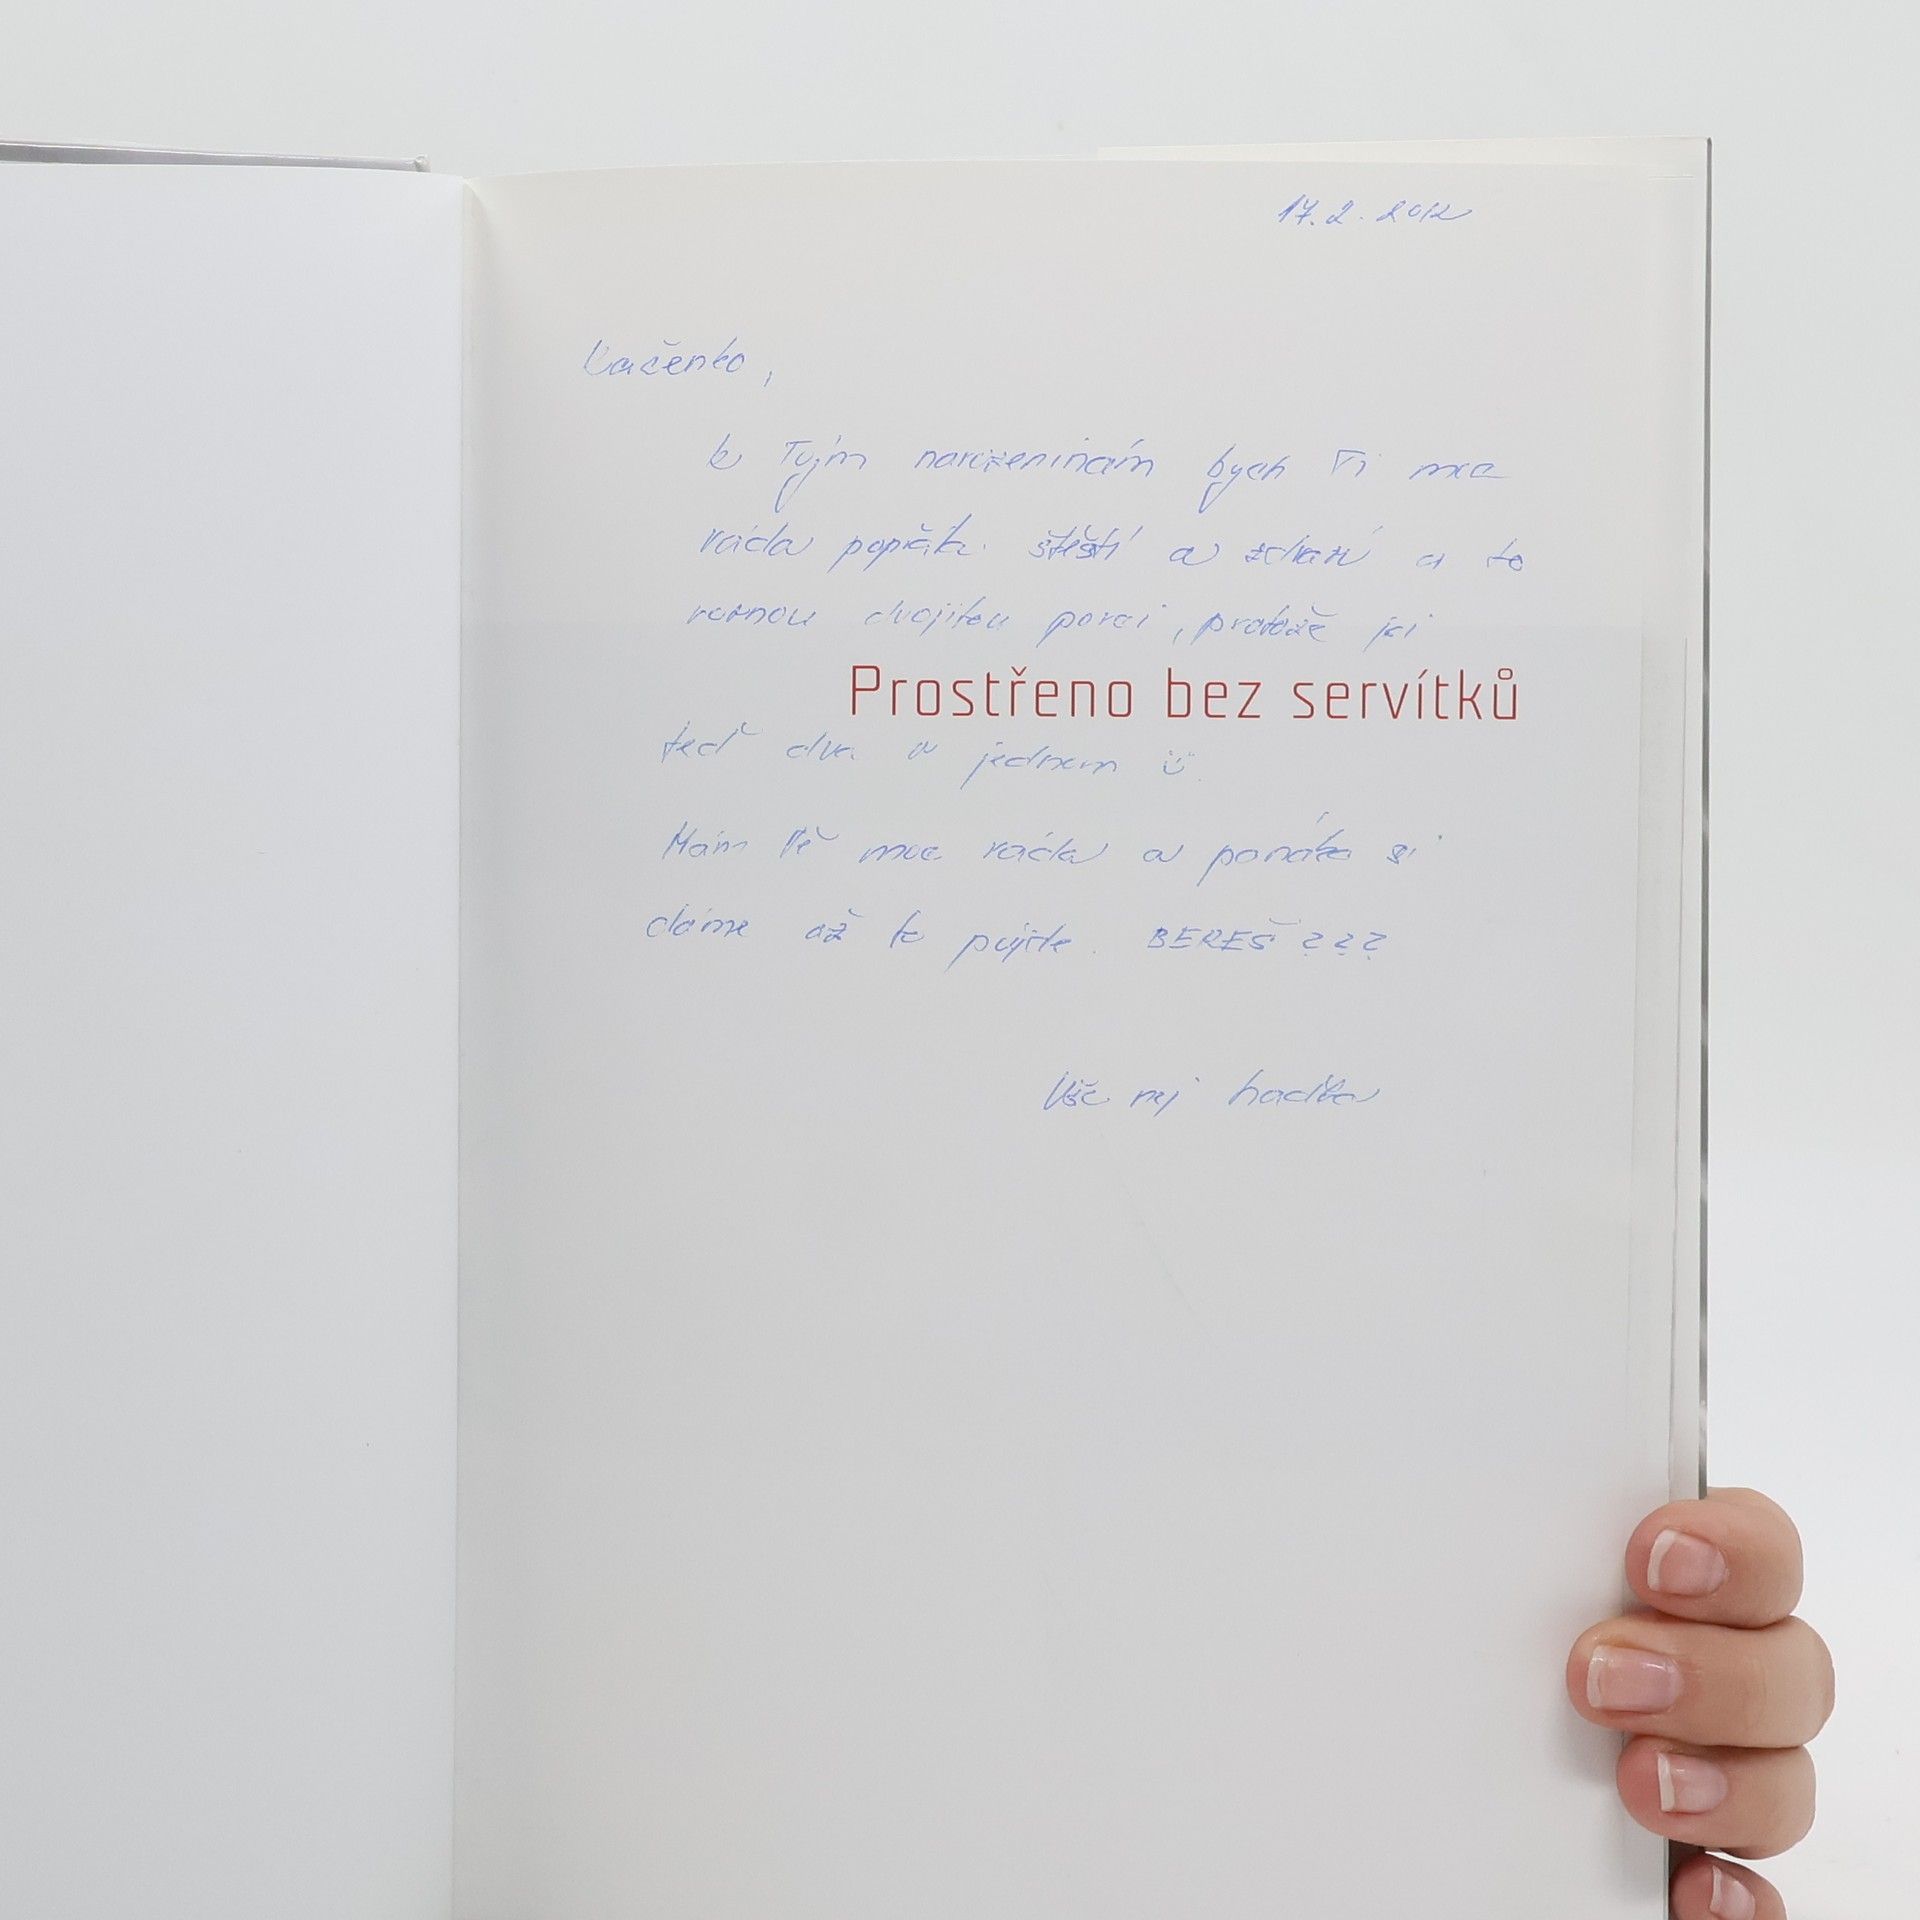 17.2.2012
Kačenko,
k Tvým narozeninám bych Ti moc
ráda popřála štěstí a zdraví a to
rovnou dvojitou porci, protože jsi
Prostřeno bez servítků
teď dva v jednom ü.
Mám Tě moc ráda a panáka si
dáme až to půjde. BEREŠ???
Vše nej